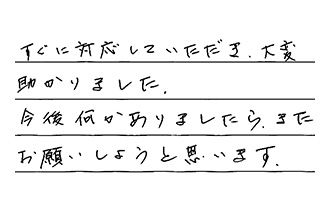 すぐに対応していただき、大変
助かりました。
今後何かありましたら、また
お願いしようと思います。